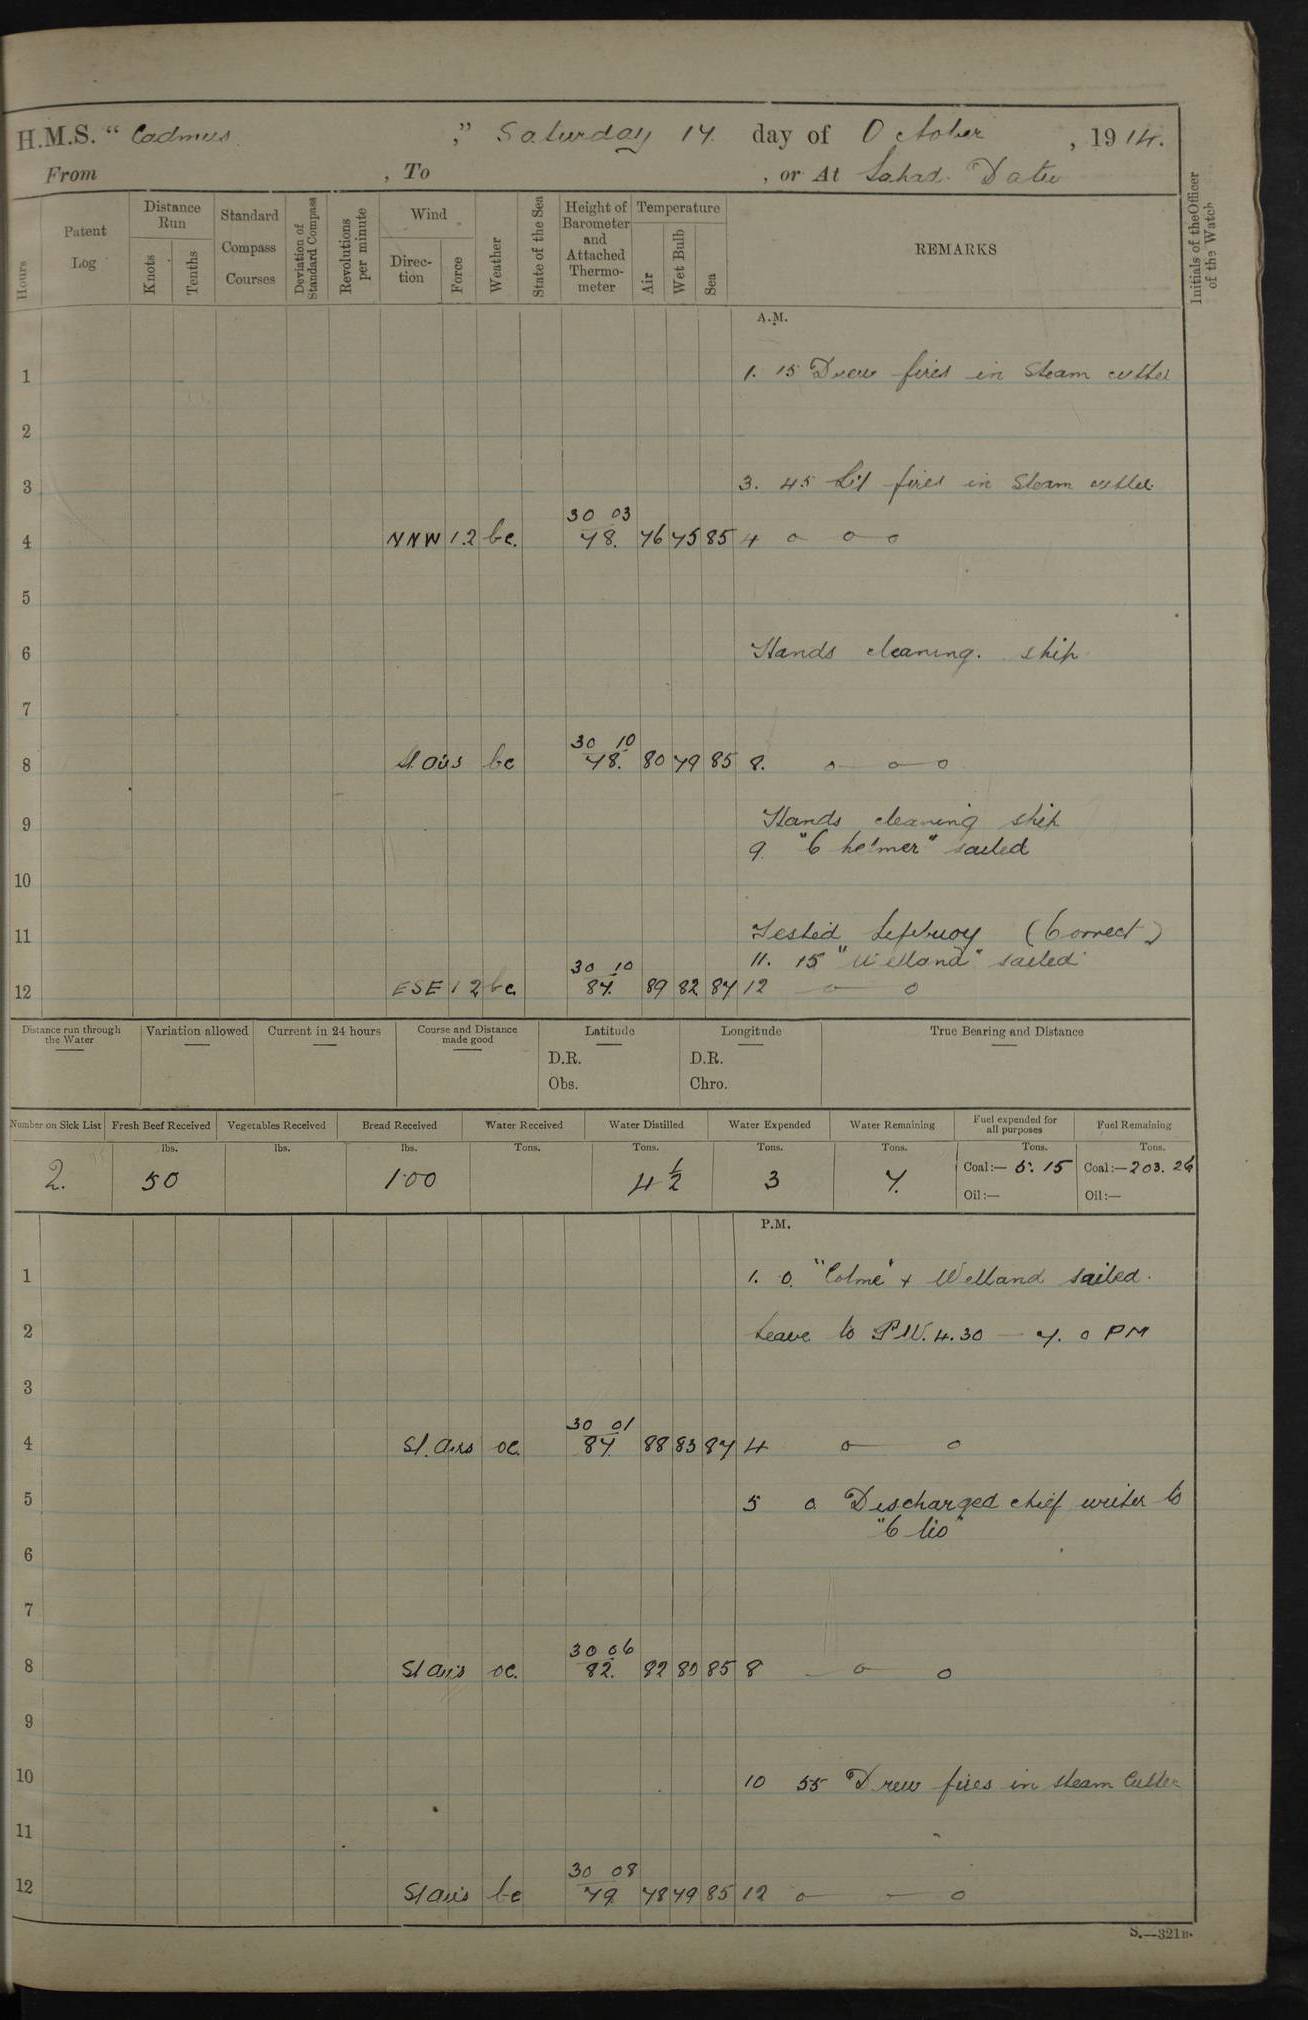 H.M.S. " Cadmus ", Saturday 17 day of October, 1914.
From , To , or At Lahad Datu
Hours
Patent Log
Distance Run
Knots
Tenths
Standard Compass Courses
Deviation of Standard Compass
Revolutions per minute
Wind
Direction
Force
Weather
State of the Sea
Height of Barometer and Attached Thermometer
Temperature
Air
Wet Bulb
Sea
REMARKS
Initials of the Officer of the Watch
A.M.
1 1. 15 Drew fires in Steam cutter
2
3 3. 45 Lit fires in Steam cutter
30 03
4 NNW 1.2 bc. 78. 76 75 85 4 o o o
5
6 Hands cleaning. ship
7
30 10
8 Lt airs bc 78. 80 79 85 8. o o o
9 Hands cleaning ship
9. "Chelmer" sailed
10
11 Tested Lifebuoy (Correct)
30 10 11. 15 "Welland" sailed
12 ESE 1 2 bc 87. 89 82 87 12 o o
Distance run through the Water
Variation allowed
Current in 24 hours
Course and Distance made good
Latitude
Longitude
True Bearing and Distance
D.R. D.R.
Obs. Chro.
Number on Sick List
Fresh Beef Received
Vegetables Received
Bread Received
Water Received
Water Distilled
Water Expended
Water Remaining
Fuel expended for all purposes
Fuel Remaining
lbs. lbs. lbs. Tons. Tons. Tons. Tons. Tons. Tons.
2. 50 100 4 1/2 3 7. Coal:— 5. 15 Coal:— 203. 26
Oil:— Oil:—
P.M.
1 1. 0. "Colne" + Welland sailed.
2 Leave to P.W. 4.30 — 7. 0 PM
3
30 01
4 St. Airs oc. 87. 88 83 87 4 o o
5 5 0. Discharged chief writer to
"Clio"
6
7
30 06
8 St airs oc. 82. 82 80 85 8 o o
9
10 10 55 Drew fires in steam Cutter
11
30 08
12 St airs bc 79. 78 79 85 12 o o
S.—321B.